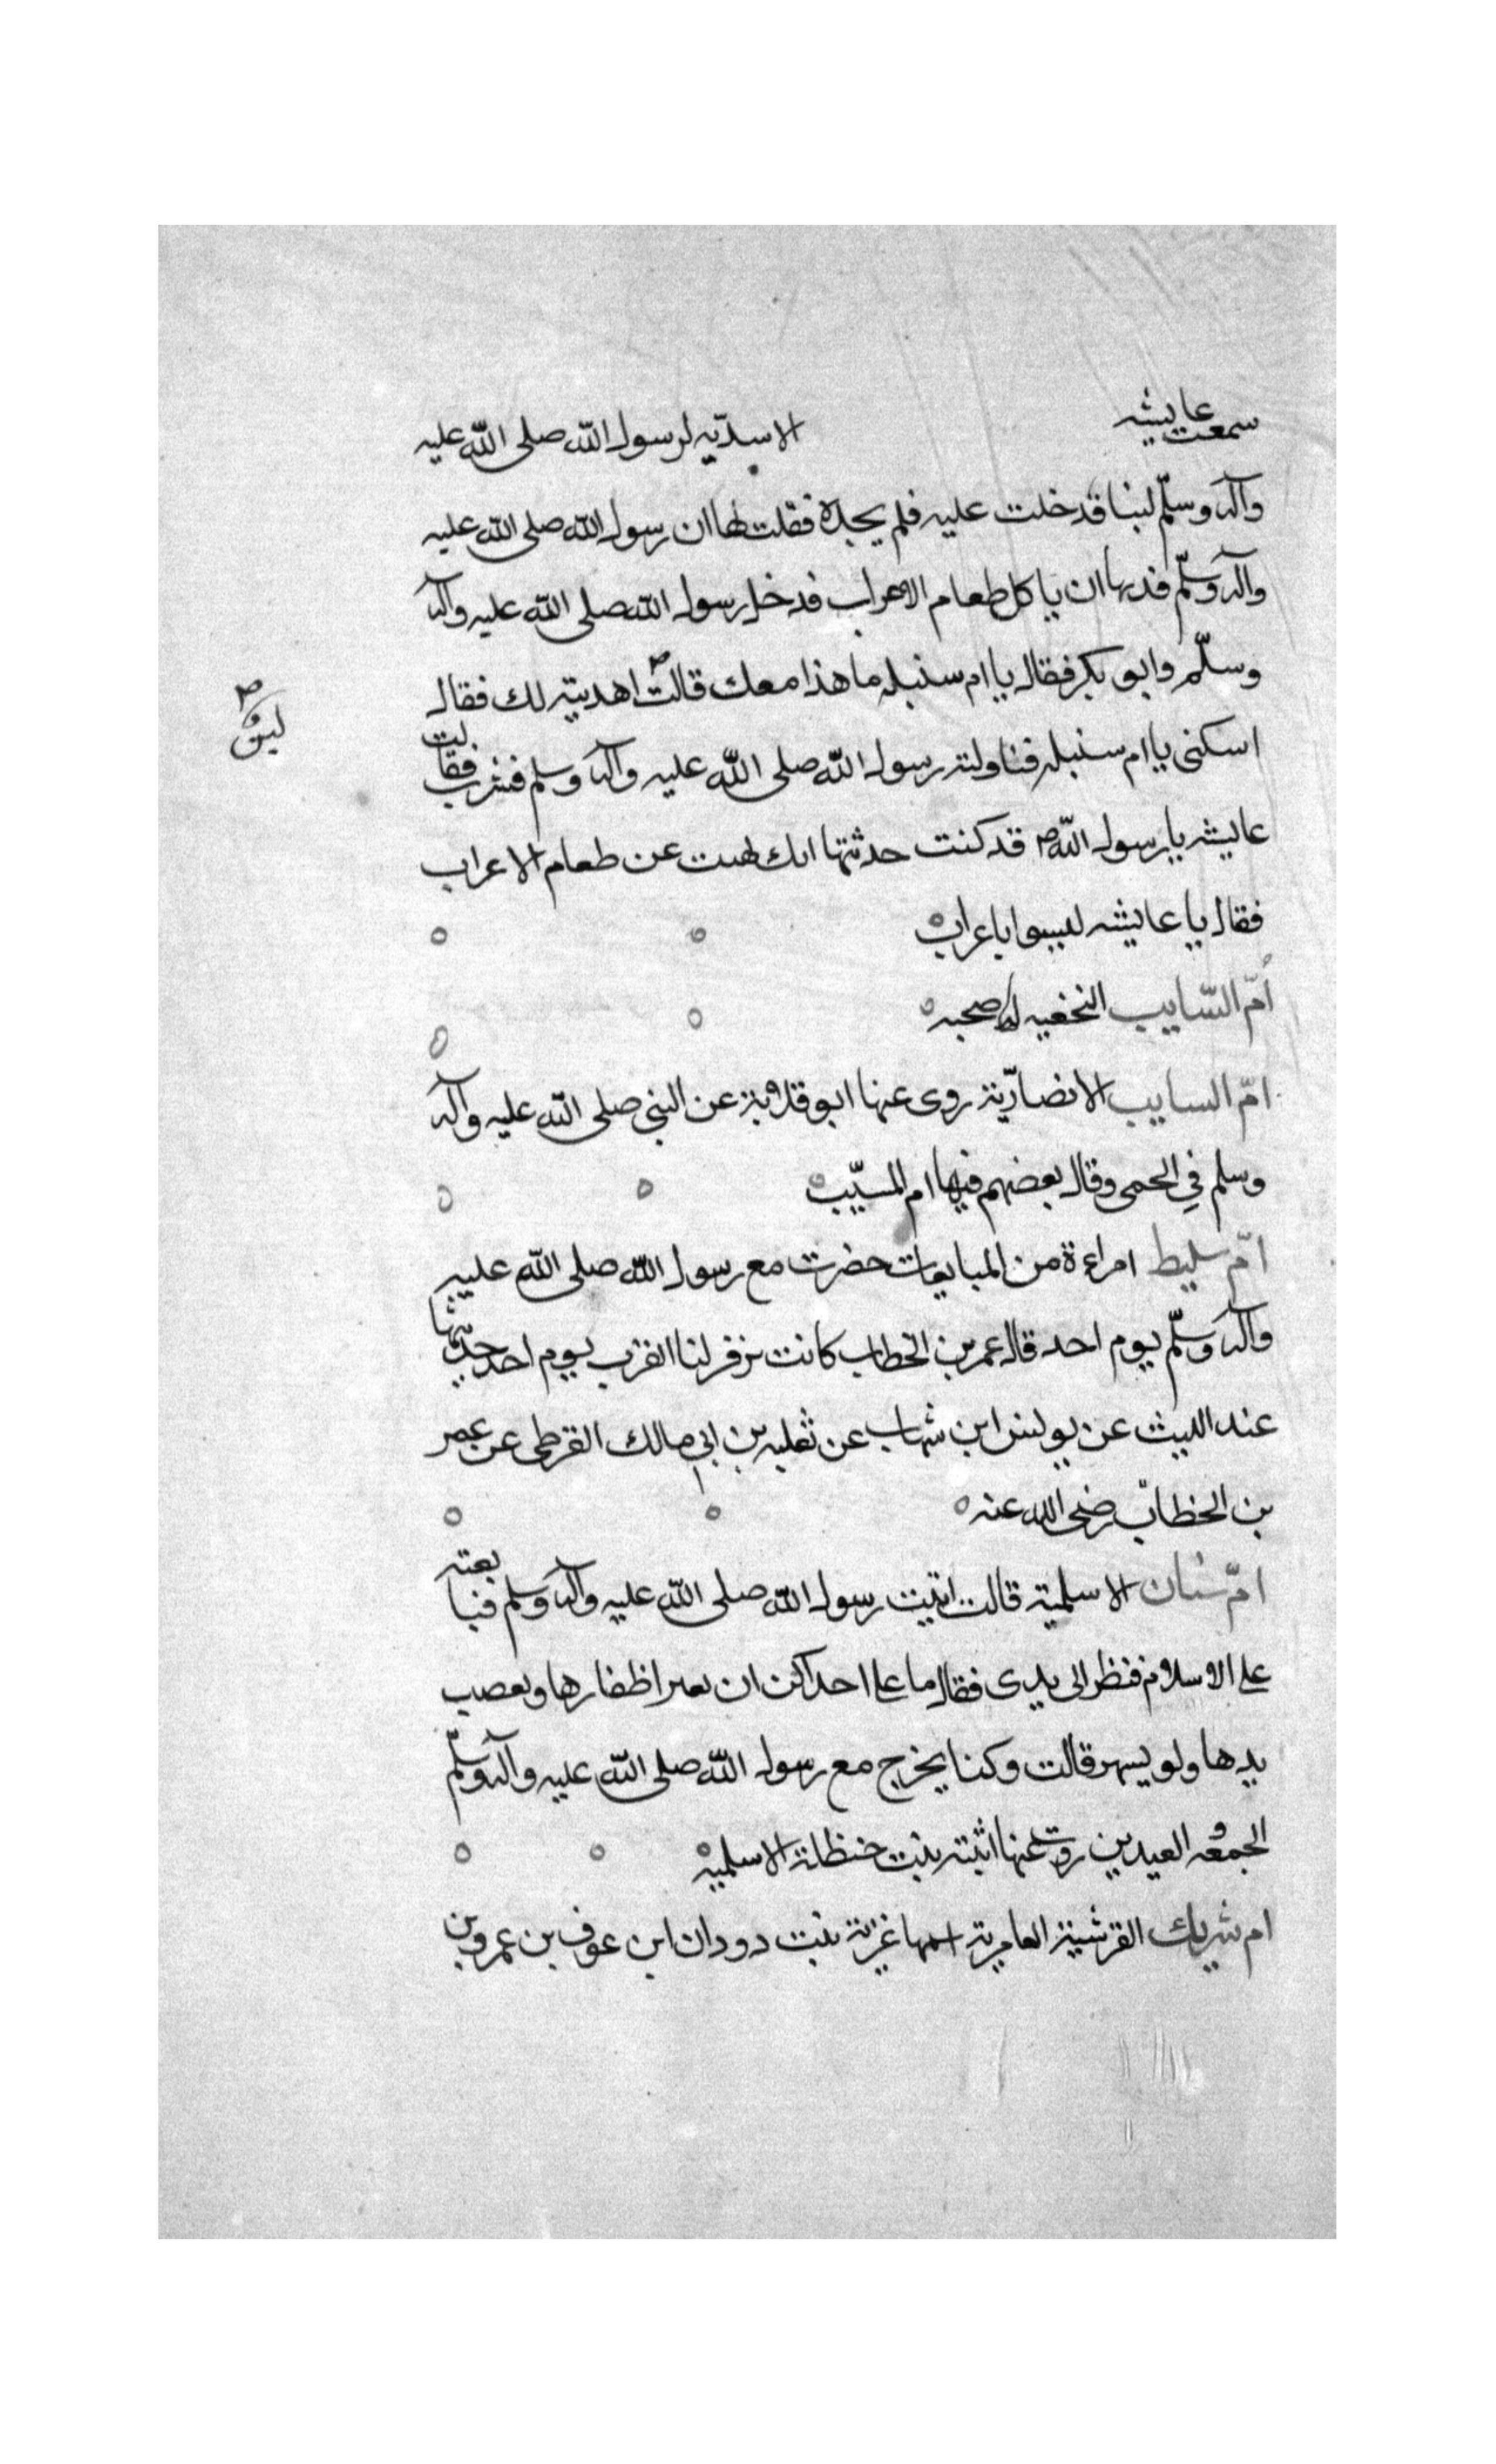 سمعت عايشه الاسديه لرسول الله صلى الله عليه
وآله وسلّم لبنا قدخلت عليه فلم يجده فقلت لها ان رسول الله صلى الله عليه
وآله وسلّم قد نها ان ياكل طعام الاعراب فدخل رسول الله صلى الله عليه وآله
وسلّم وابو بكر فقال يا ام سنبله ما هذا معك قالت اهديته لك فقال
اسكنى يا ام سنبله فناولته رسول الله صلى الله عليه وآله وسلم فشرب فقالت
عايشه يا رسول الله قد كنت حدثتها انك نهيت عن طعام الاعراب
فقال يا عايشه ليسوا باعراب
اُمّ السّايب النخعيه لها صحبه
امّ السايب الانصاريّة روى عنها ابو قلابة عن النبي صلى الله عليه وآله
وسلم في الحمى وقال بعضهم فيها ام المسيّب
امّ سليط امراءة من المبايعات حضرت مع رسول الله صلى الله عليه
وآله وسلّم يوم احد قال عمر بن الخطاب كانت تزفر لنا القرب يوم احد حديثها
عند الليث عن يونس ابن شهاب عن ثعلبه بن ابي مالك القرظى عن عمر
بن الخطاب رضى الله عنه
امّ سنان الاسلمية قالت اتيت رسول الله صلى الله عليه وآله وسلم فبايعته
على الاسلام فنظر الى يدى فقال ما على احداكن ان تغير اظفارها وتعصب
يدها ولو بسير قالت وكنا نخرج مع رسول الله صلى الله عليه وآله وسلّم
الجمعه و العيدين روت عنها اثبته بنت حنظلة الاسلميه
ام شريك القرشية العامرية اسمها غزية بنت دودان ابن عوف بن عمرو بن